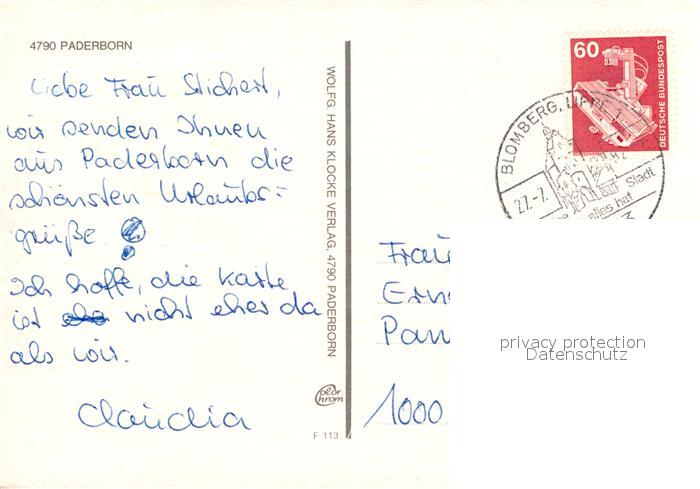 4790 PADERBORN
Liebe Frau Stichert,
wir senden Ihnen
aus Paderborn die
schönsten Urlaubs=
grüße!
Ich hoffe, die Karte
ist nicht eher da
als wir.
Claudia
WOLFG. HANS KLOCKE VERLAG, 4790 PADERBORN
color
chrom
F 113
60
DEUTSCHE BUNDESPOST
BLOMBERG, LIPPE 1
27.-7.
Stadt
alles hat
Frau
1000
privacy protection
Datenschutz